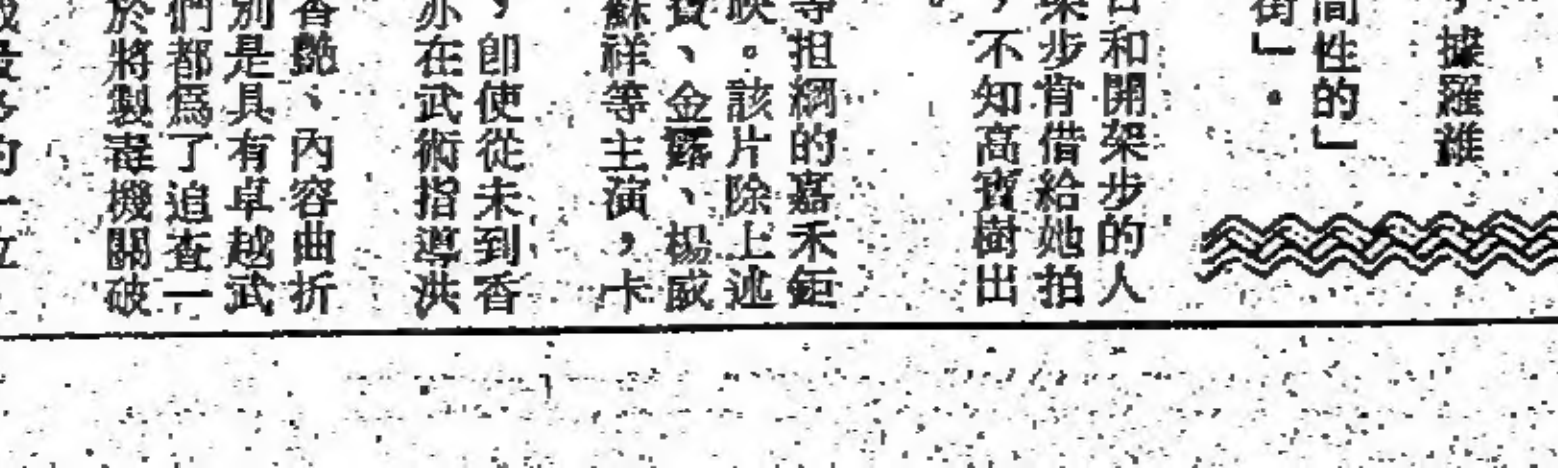 ，據羅維
間性的」
街」。
和開架步的人
架步肯借給她拍
，不知高寶樹出
。
等担綱的嘉禾鉅
映。該片除上述
寶、金露、楊威
蘇祥等主演，卡
，即使從未到香
亦在武術指導洪
香艷、內容曲折
別是具有卓越武
們都爲了追查一
於將製毒機關破